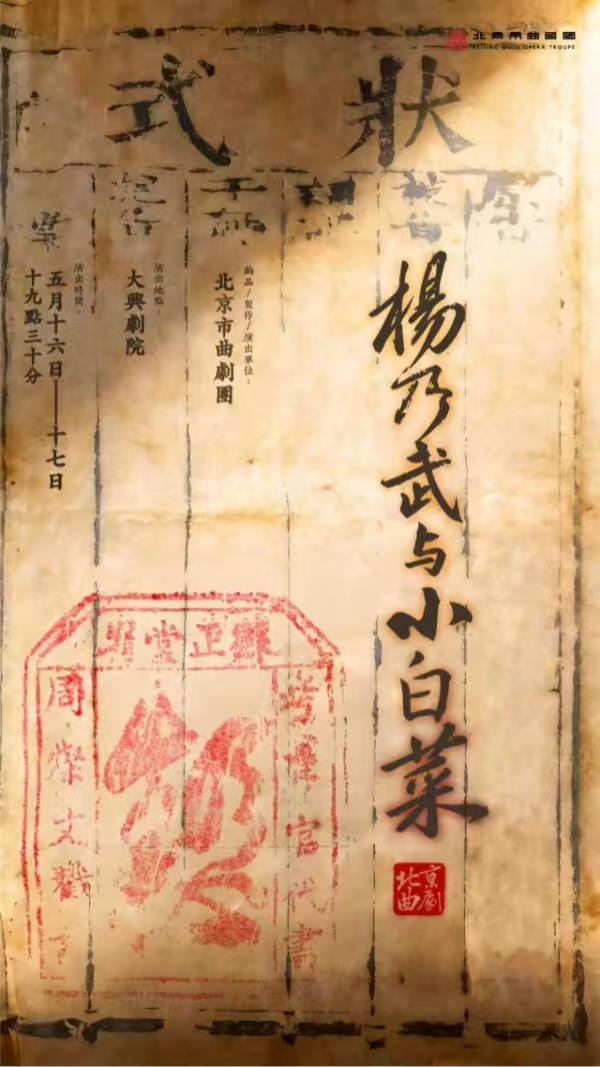 北京市曲劇團
BEIJING QUJU OPERA TROUPE
狀式
楊乃武与小白菜
北京曲劇
出品/製作/演出單位：
北京市曲劇團
演出地點：
大興劇院
演出時間：
五月十六日——十七日
十九點三十分
正堂
官代書
周
文戳